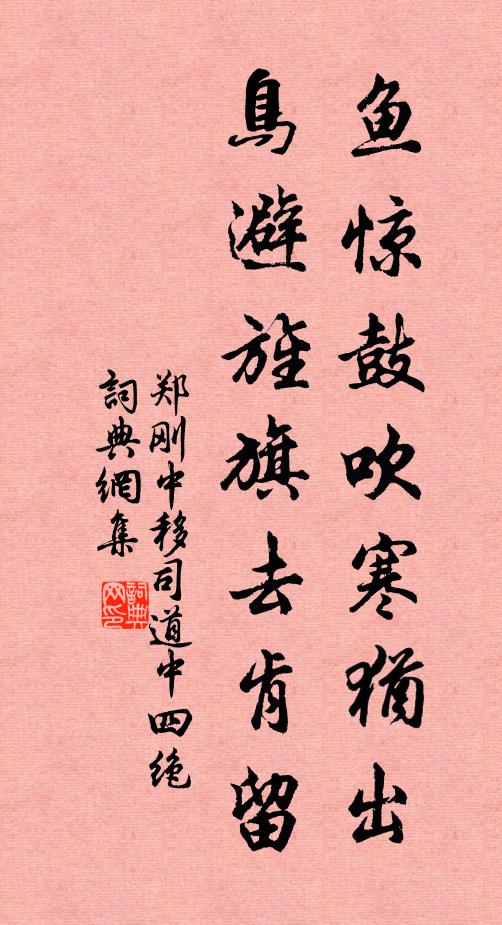 鱼惊鼓吹寒犹出
鳥避旌旗去肯留
郑刚中移司道中四绝
詞典網集
詞典网印